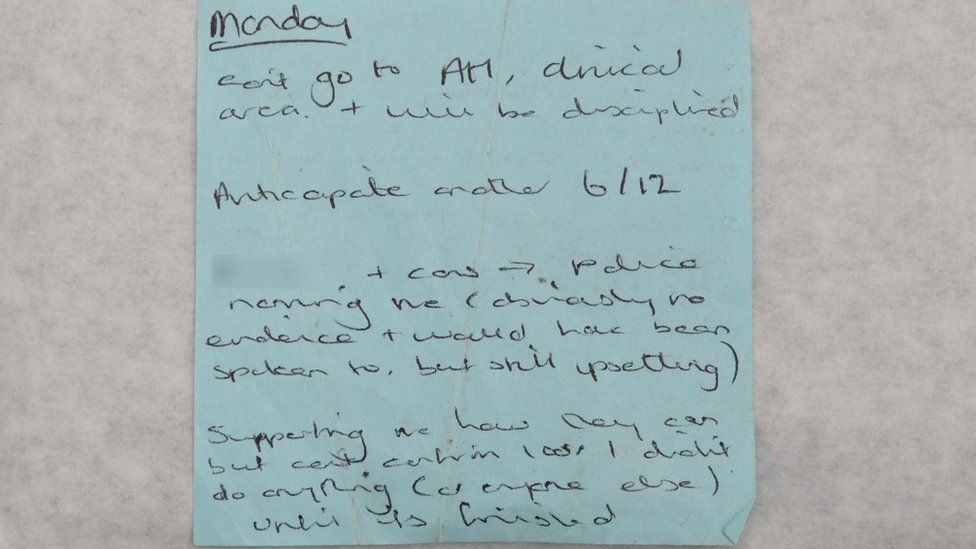 Monday
can't go to AH, clinical
area. + will be disciplined
Anticapate another 6/12
+ cons → police
naming me (obviously no
evidence + would have been
spoken to. but still upsetting)
Supporting me how they can
but can't confirm 100% I didn't
do anything (or anyone else)
until its finished